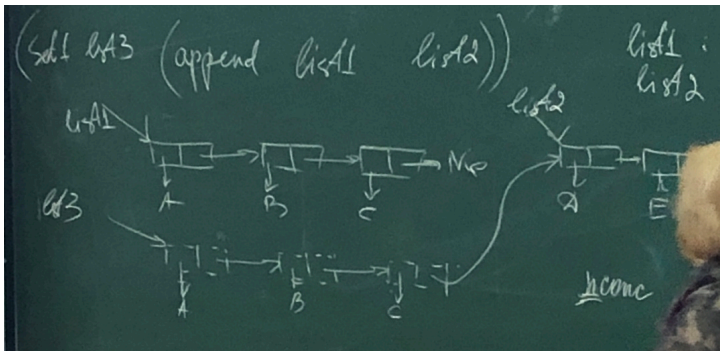 (setf list3 (append list1 list2))
list1
list2
list2
list1
Nil
A B C
D E
list3
A B C
nconc